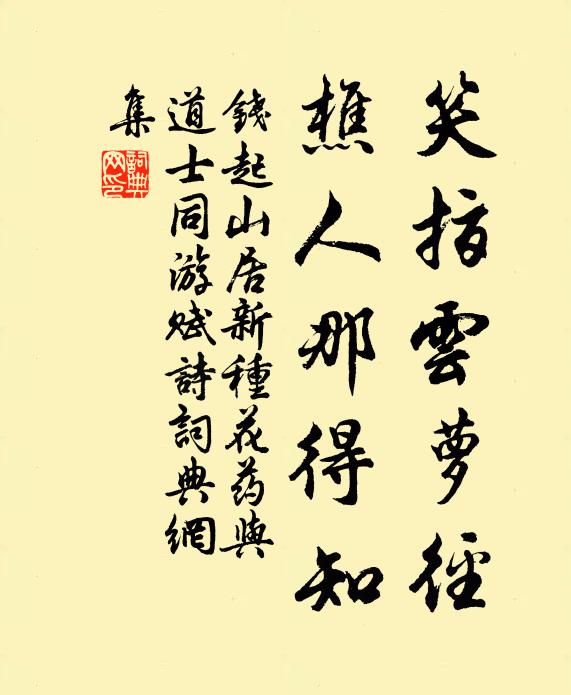 笑指雲夢徑
樵人那得知
錢起山居新種花药與
道士同游賦詩詞典網
集
詞典
网印